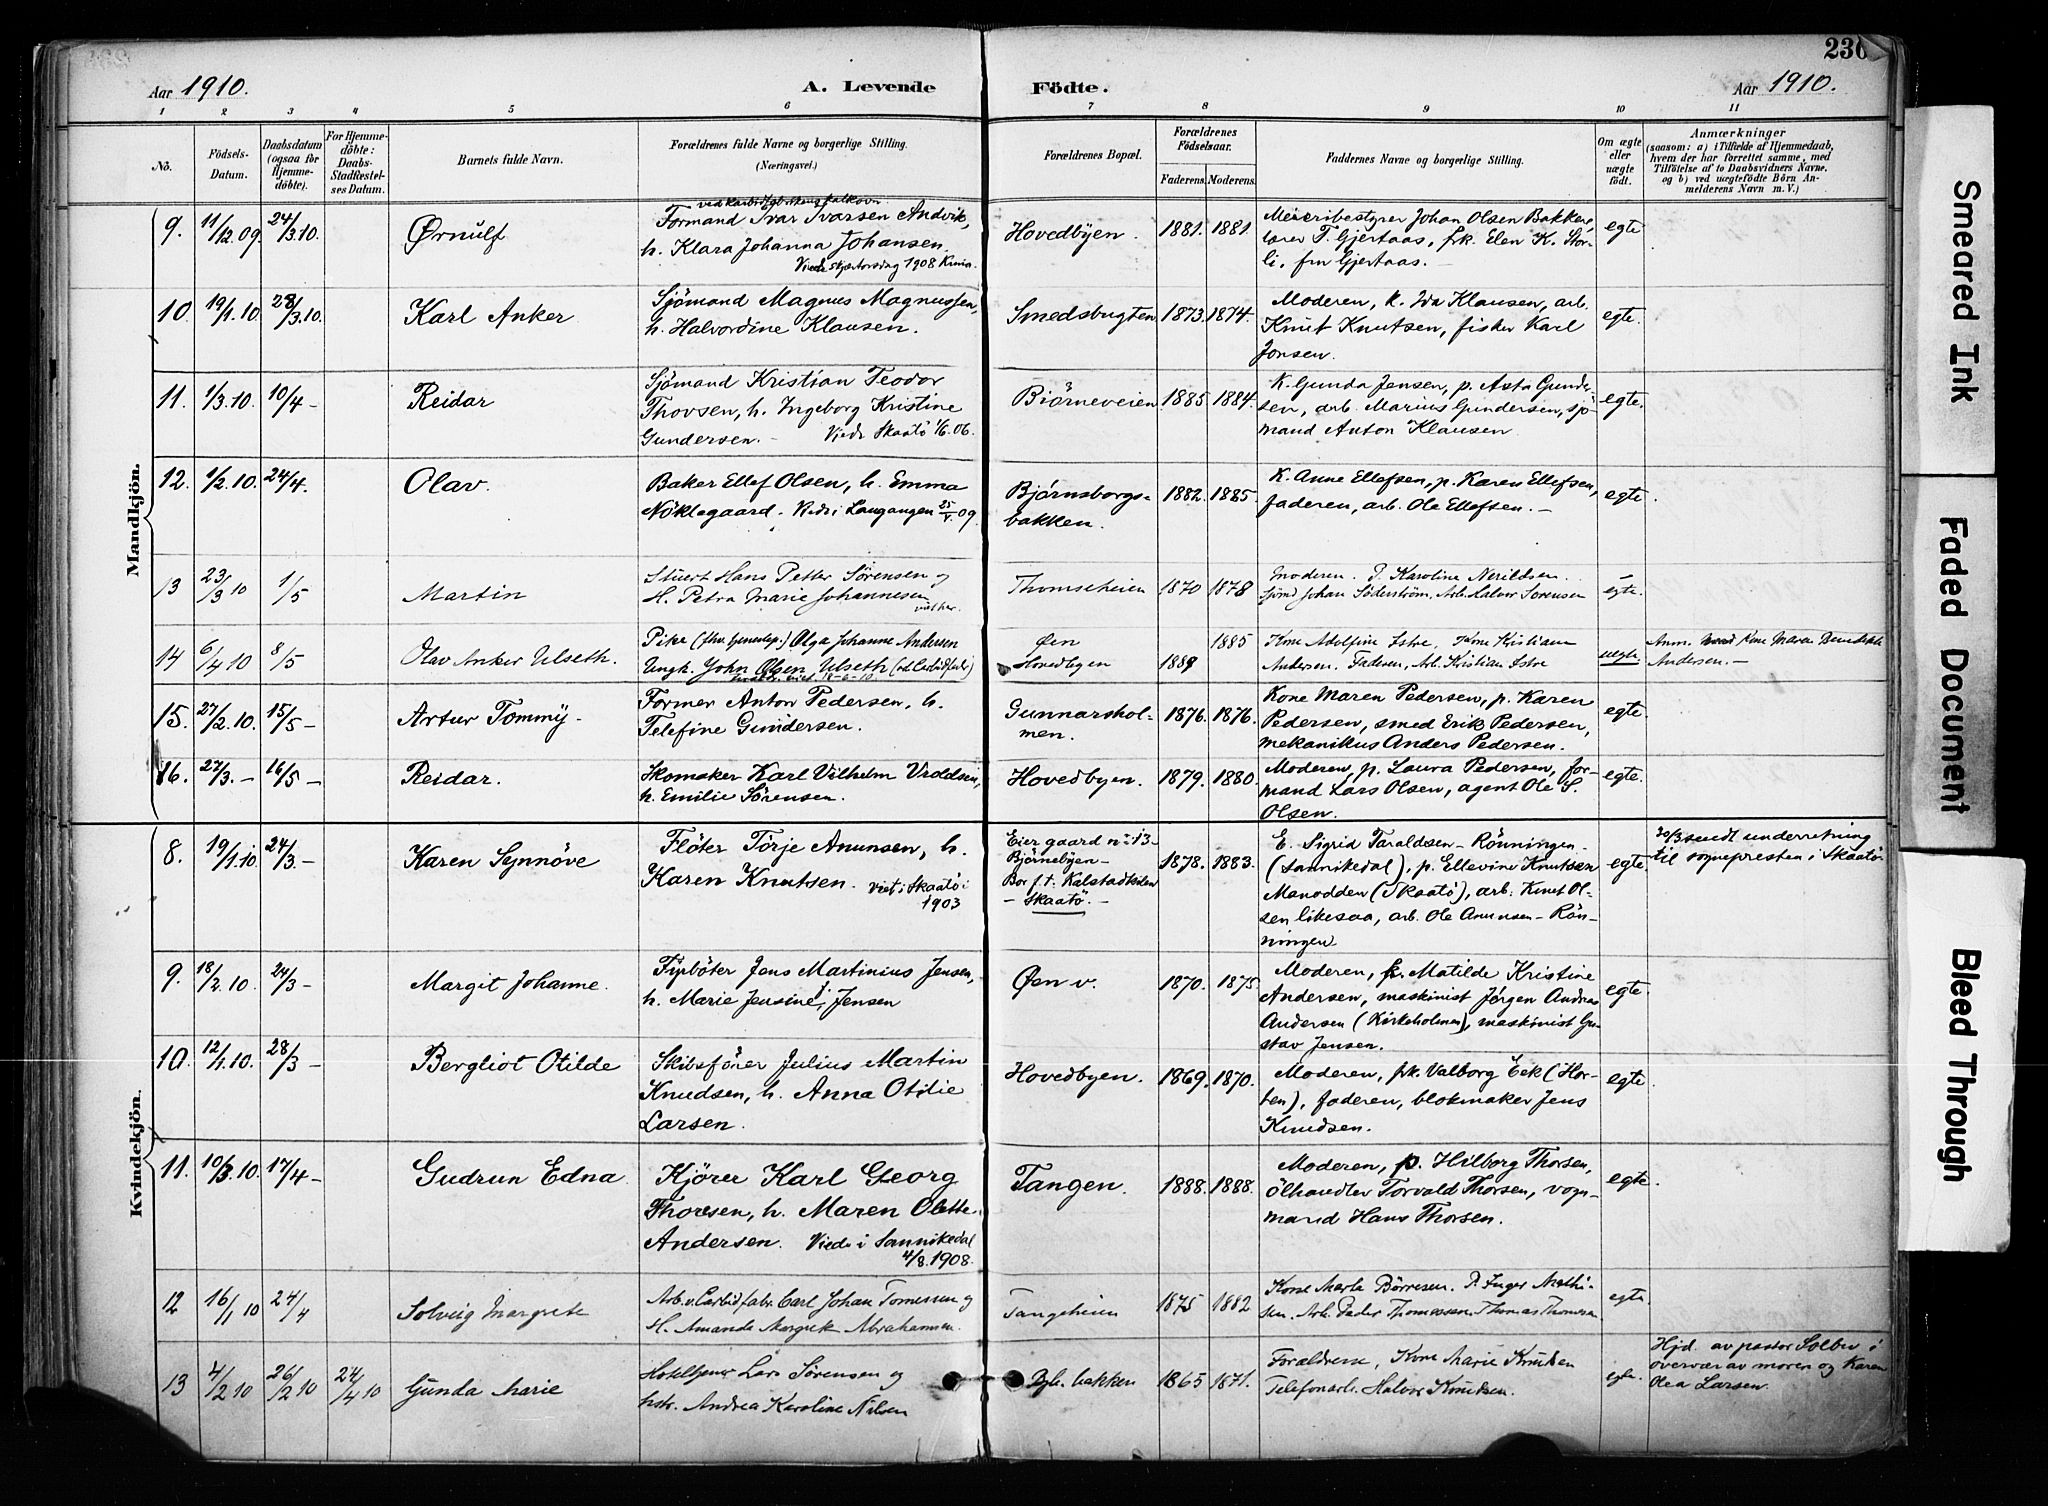 230
Aar 1910. A. Levende Födte. Aar 1910.
1 2 3 4 5 6 7 8 9 10 11
No. Födsels-Datum. Daabsdatum (ogsaa for Hjemme-döbte). For Hjemme-döbte: Daabs-Stadfæstel-ses Datum. Barnets fulde Navn. Forældrenes fulde Navne og borgerlige Stilling. (Næringsvei.) Forældrenes Bopæl. Forældrenes Födselsaar. Faderens. Moderens. Faddernes Navne og borgerlige Stilling. Om ægte eller uægte födt. Anmærkninger (saasom: a) i Tilfælde af Hjemmedaab, hvem der har forrettet samme, med Tilföielse af to Daabsvidners Navne. og b) ved uægtefödte Börn An-melderens Navn m. V.)
Mandkjön.
9. 11/12.09. 24/3.10. Ørnulf
Formand Ivar Ivarsen Andvik,
h. Klara Johanna Johansen.
Viede skjærtorsdag 1908 Krnia.
Hovedbyen. 1881. 1881.
Meieribestyrer Johan Olsen Bakken,
lærer T. Gjertaas, frk. Elen K. Stor-
li, fru Gjertaas. egte
10. 19/1.10. 28/3.10. Karl Anker
Sjömand Magnus Magnussen,
h. Halvordine Klausen.
Smedsbugten 1873. 1874.
Moderen, k. Ida Klausen, arb.
Knut Knutsen, fisker Karl
Jonsen. egte.
11. 1/3.10. 10/4 - Reidar
Sjömand Kristian Teodor
Thovsen, h. Ingeborg Kristine
Gundersen. - Viede Skaatö 1/6.06.
Björneveien 1885. 1884.
K. Gunda Jensen, p. Asta Gunder-
sen, arb. Marius Gundersen, sjö-
mand Anton Klausen. egte.
12. 1/2.10. 24/4. Olav.
Baker Ellef Olsen, h. Emma
Nöklegaard. Viede i Langangen 25/4 09.
Bjørnsborgs-
bakken. 1882. 1885.
K. Anne Ellefsen, p. Karen Ellefsen,
faderen, arb. Ole Ellefsen. - egte.
13 23/3 10 1/5 Martin
Stuert Hans Petter Sørensen og
H. Petra Marie Johannesen
Thomeheien 1870 1878
Moderen. P. Karoline Nerildsen.
Sjömd Johan Söderström, Arb. Halvor Sorensen egte.
14 6/4 10 8/5 Olav Anker Ulseth.
Pike Olga Johanne Andersen
Ungk. John Olsen Ulseth
Øen
Hovedbyen 1889 1885
Kone Adolfine Istre, Kone Kristiane
Andersen. Faderen, Arb. Kristian Istre uegte.
Anm. Kone Maren Benedikte
Andersen. -
15. 27/2.10. 15/5 - Artur Tommy -
Former Anton Pedersen, h.
Telefine Gundersen.
Gunnarshol-
men. 1876. 1876.
Kone Maren Pedersen, p. Karen
Pedersen, smed Erik Pedersen,
mekanikus Anders Pedersen. egte.
16. 27/3. - 16/5 - Reidar.
Skomaker Karl Vilhelm Vroldsen,
h. Emilie Sörensen.
Hovedbyen. 1879. 1880.
Moderen, p. Laura Pedersen, for-
mand Lars Olsen, agent Ole S.
Olsen. egte.
Kvindekjön.
8. 19/1.10. 24/3 - Karen Synnöve
Flöter Törje Anunsen, h.
Karen Knutsen. viet i Skaatö i
1903
Eier gaard nr 13
Björnebyen -
Bor f.t. Kalstadkilen
- Skaatö. - 1878. 1883.
E. Sigrid Taraldsen - Rönningen -
(Sannikedal), p. Ellevine Knutsen
Manodden (Skaatö), arb. Knut Ol-
sen likesaa, arb. Ole Anunsen - Rön-
ningen. egte.
30/3 sendt underretning
til sognepresten i Skaatö.
9. 18/2.10. 24/3 - Margit Johanne.
Fyrböter Jens Martinius Jensen,
h. Marie Jensine, Jensen
Øen v. 1870. 1875.
Moderen, p. Matilde Kristine
Andersen, maskinist Jörgen Andreas
Andersen (Kirkeholmen), maskinist Gu-
stav Jensen. egte.
10. 12/1.10. 28/3 - Bergliot Otilde
Skibsförer Julius Martin
Knudsen, h. Anna Otilie
Larsen.
Hovedbyen. 1869. 1870.
Moderen, frk. Valborg Eek (Hor-
ten), faderen, blokmaker Jens
Knudsen. egte.
11. 10/3.10. 17/4 - Gudrun Edna
Kjörer Karl Georg
Thoresen, h. Maren Olette
Andersen. Viede i Sannikedal
4/8.1908.
Tangen. 1888. 1888.
Moderen, p. Hilborg Thorsen,
ölhandler Torvald Thorsen, vogn-
mand Hans Thorsen. egte.
12 16/1 10 24/4 Solveig Margrete
Arb. v. Carbidfabr. Carl Johan Tomessen og
H. Amanda Margrete Abrahamsen.
Tangeheien 1875 1882
Kone Marta Börresen. P. Inger Mathi-
sen. Arb. Peder Thomassen, Thomas Thomesen egte
13 4/2 10 26/2 10 24/4 10 Gunda Marie
Lars Sørensen og
hstr. Andrea Karoline Nilsen
Bjb. bakken 1865 1871.
Forældrene, Kone Marie Knudsen
Telefonarb. Halvor Knudsen. egte.
Hjd. av pastor Solbu i
overvær av moren og Karen
Olea Larsen.
Smeared Ink
Faded Document
Bleed Through